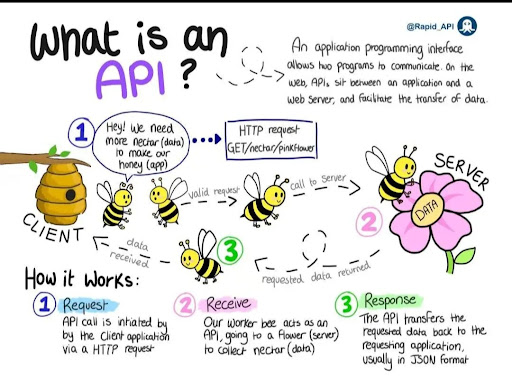 What is an
API?
@Rapid_API
An application programming interface
allows two programs to communicate. On the
web, APIs sit between an application and a
web server, and facilitate the transfer of data.
1
Hey! We need
more nectar (data)
to make our
honey (app)
HTTP request
GET/nectar/pinkflower
valid request
call to server
SERVER
DATA
2
CLIENT
data
received
3
requested data returned
How it works:
1 Request
API call is initiated by
by the client application
via a HTTP request
2 Receive
Our worker bee acts as an
API, going to a flower (server)
to collect nectar (data)
3 Response
The API transfers the
requested data back to the
requesting application,
usually in JSON format